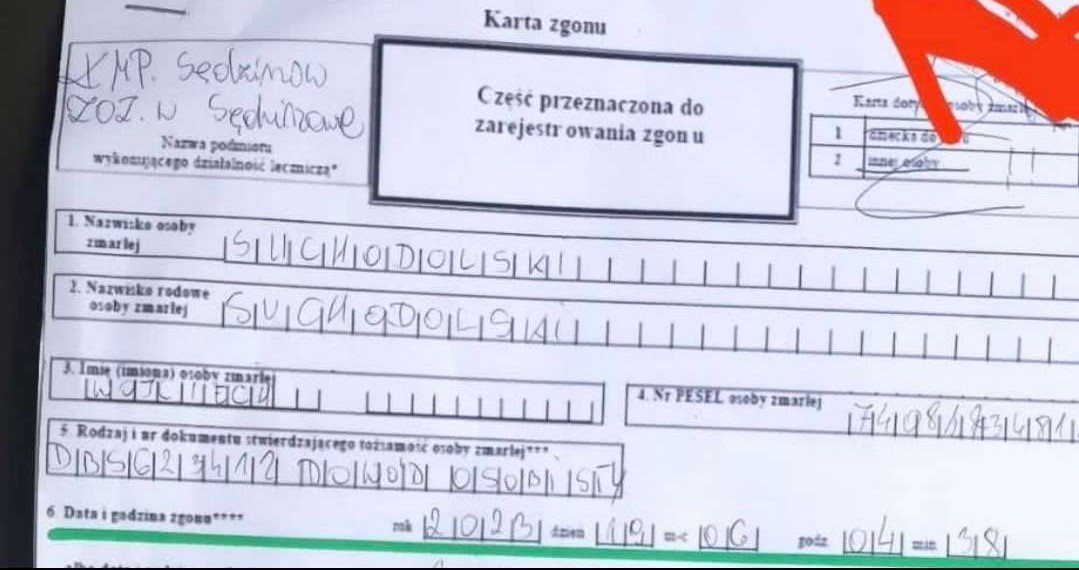 Karta zgonu
KMP. Sędzinow
ZOZ. w
Nazwa podmiotu
wykonującego działalność leczniczą*
Część przeznaczona do
zarejestrowania zgonu
Karta
1 dziecka do
2 innej osoby
1. Nazwisko osoby
zmarłej
SUCHODOLSKI
2. Nazwisko rodowe
osoby zmarłej
SUCHODOLSKI
3. Imię (imiona) osoby zmarłej
WOJCIECH
4. Nr PESEL osoby zmarłej
5. Rodzaj i nr dokumentu stwierdzającego tożsamość osoby zmarłej***
DOWOD OSOBISTY
6. Data i godzina zgonu****
rok 2023 dzień 19 m-c 06 godz 04 min 38